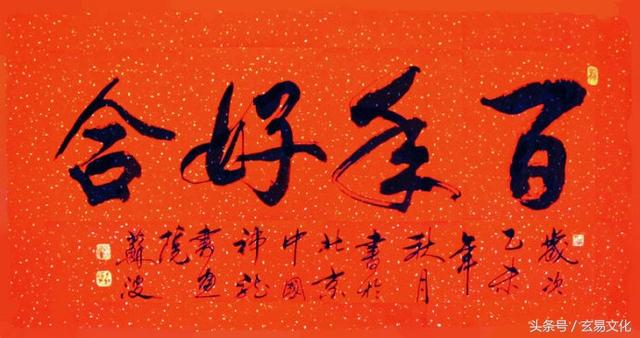 百年好合
歲次
乙未
年
秋月
書於
北京
中國
神龍
書畫
院
蘇
头条号／玄易文化